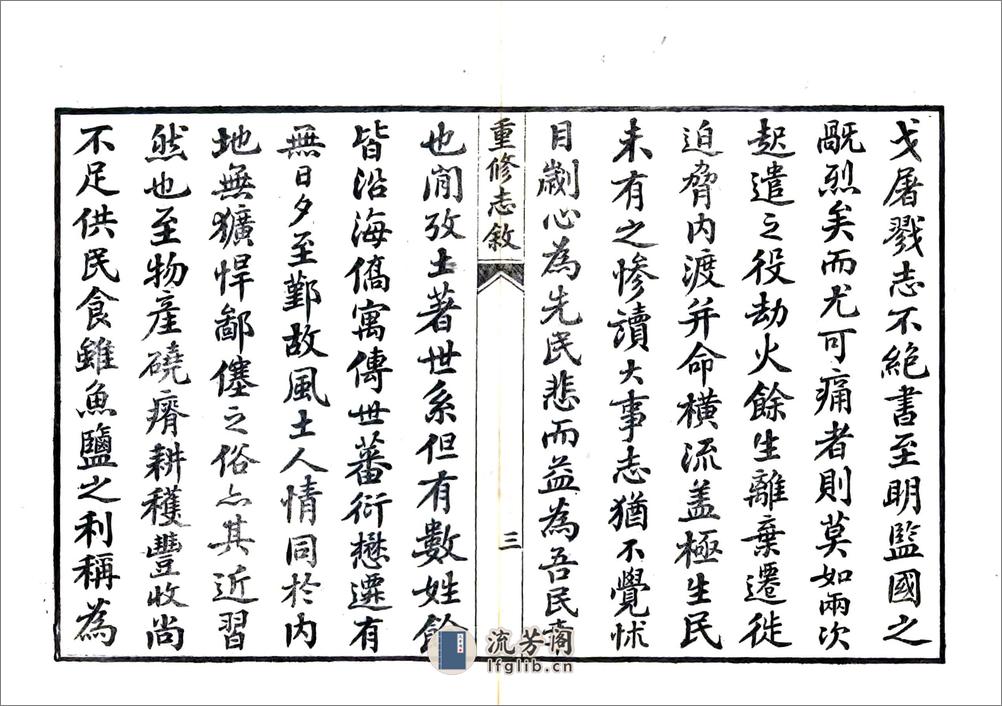 戈屠戮志不絕書至明監國之
烈矣而尤可痛者則莫如兩次
起遣之役劫火餘生離棄遷徙
迫脅內渡并命橫流盖極生民
未有之慘讀大事志猶不覺怵
目劌心為先民悲而益為吾民
重修志敘
三
也閒攷土著世系但有數姓餘
皆沿海僑寓傳世蕃衍懋遷有
無日夕至鄞故風土人情同於內
地無獷悍鄙僿之俗亦其近習
然也至物產磽瘠耕穫豐收尚
不足供民食雖魚鹽之利稱為
流芳阁
lfglib.cn